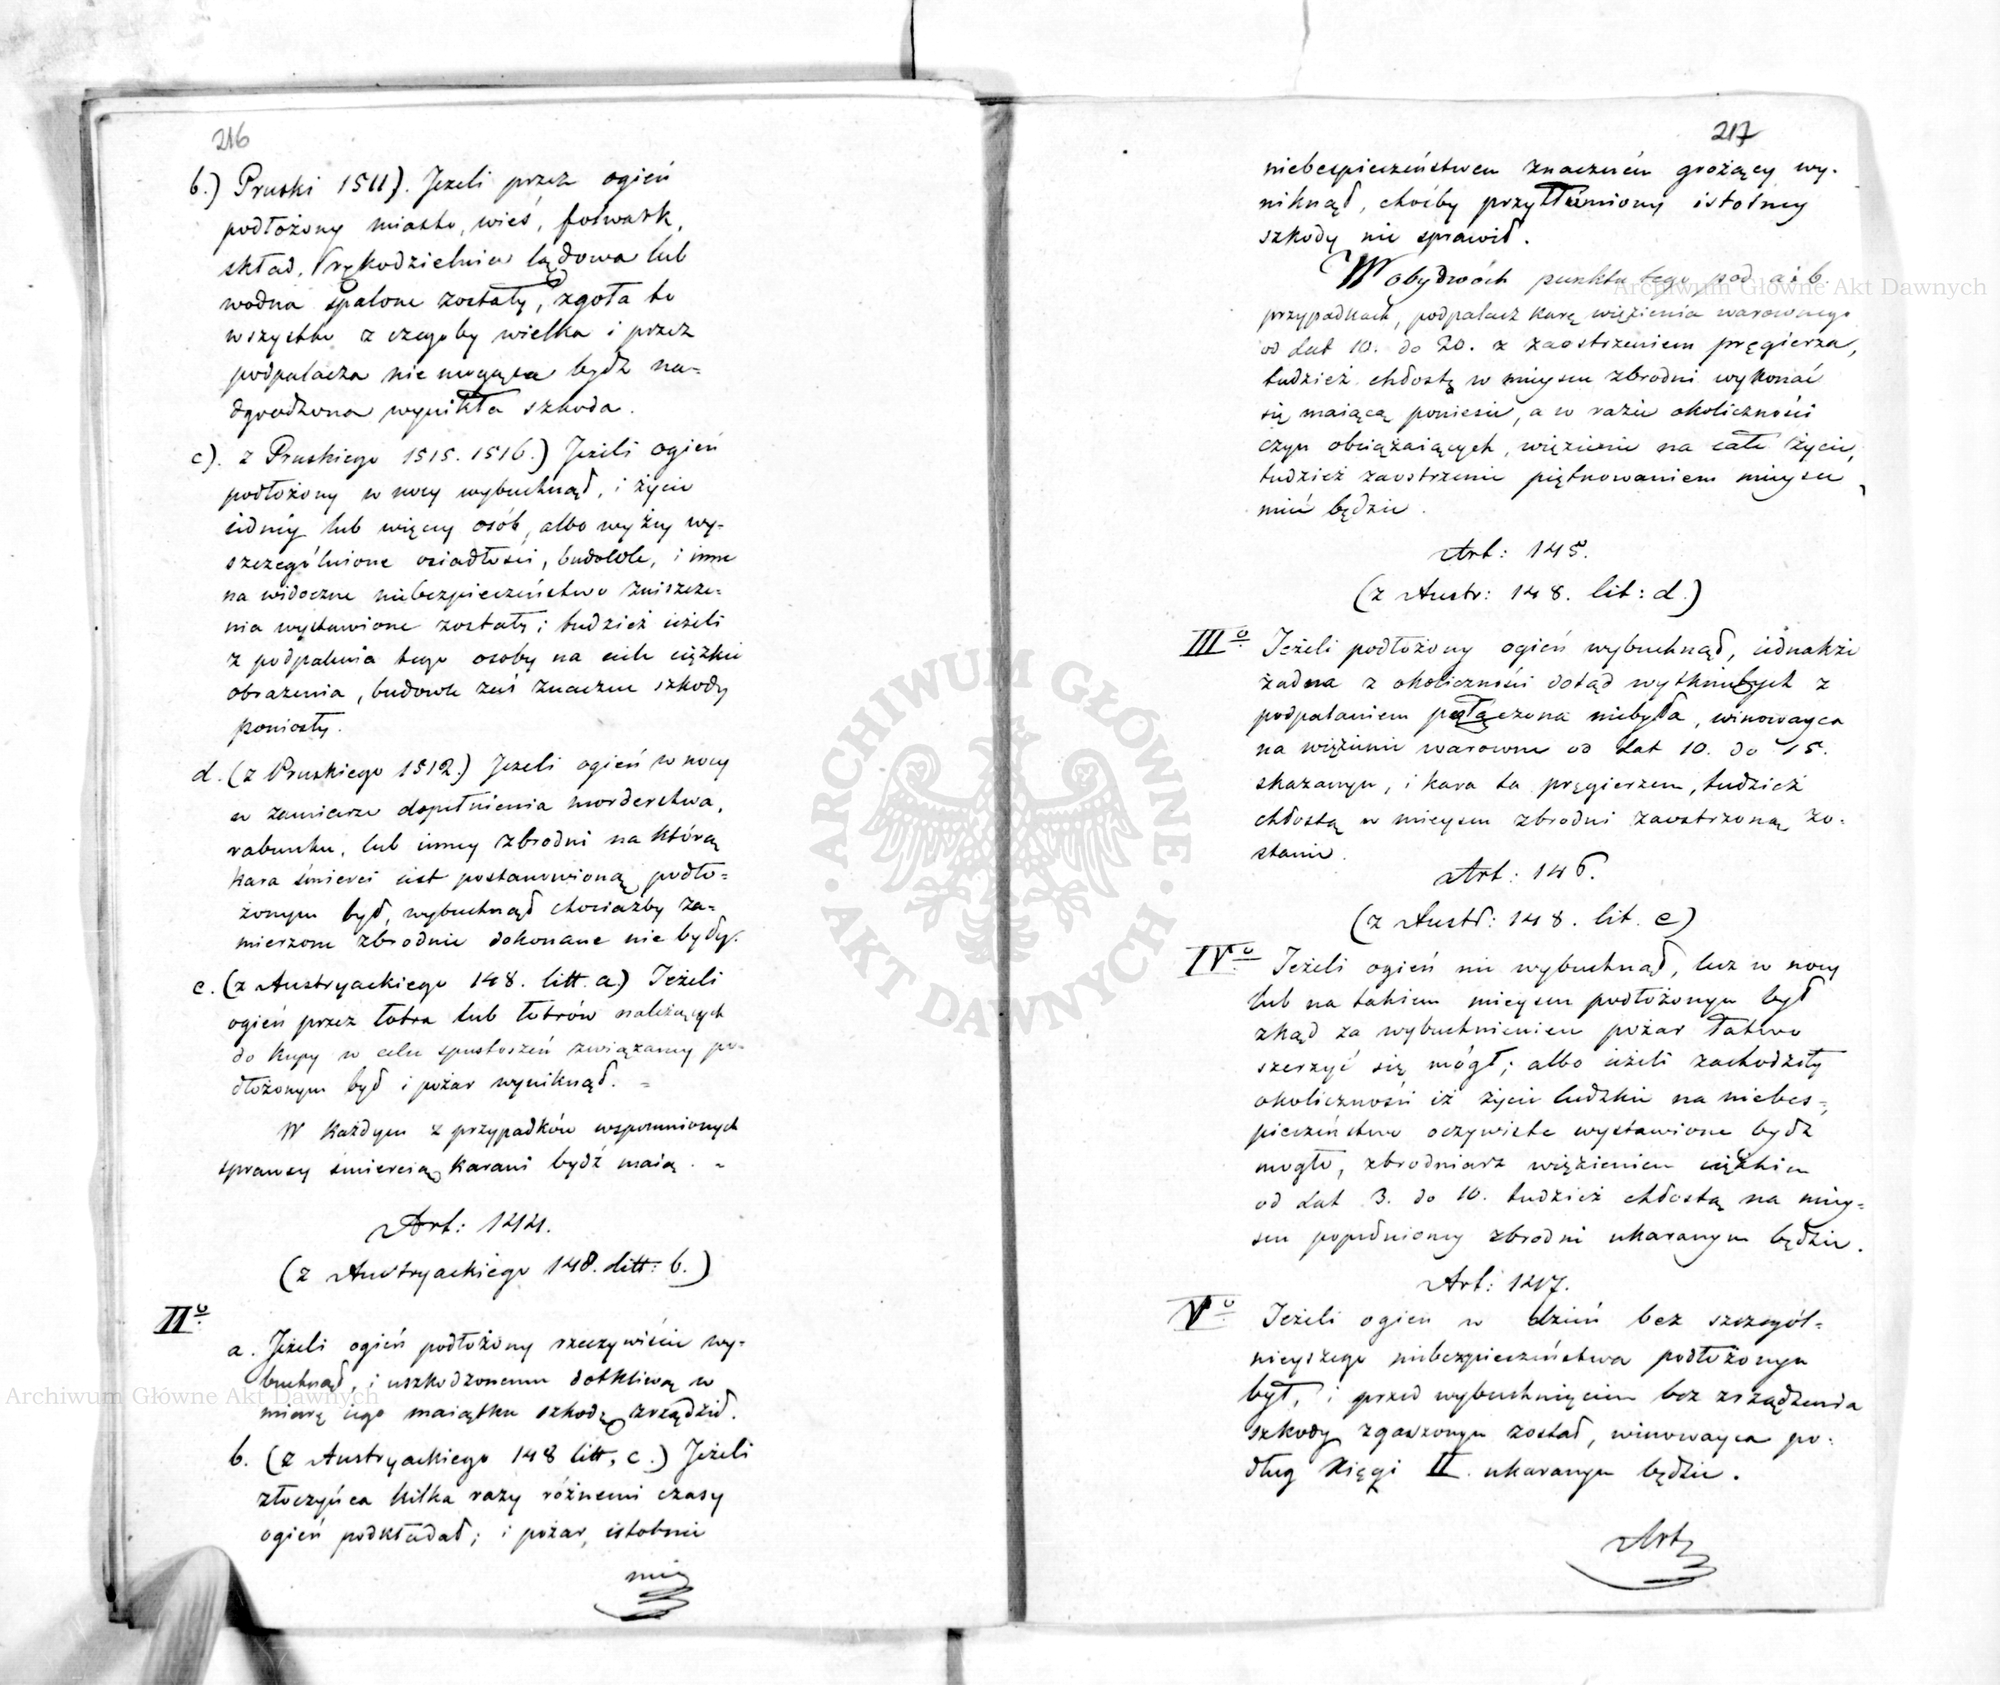 216
b.) Pruski 1511). Jezeli przez ogień
podłożony miasto, wieś, folwark,
skład, rękodzielnia lądowa lub
wodna spalone zostały, zgoła to
wszystko z czegoby wielka i przez
podpalacza nie mogąca bydź na=
dgrodzona wynikła szkoda.
c). z Pruskiego 1515. 1516.) Jeżeli ogień
podłożony w nocy wybuchnął, i życie
iedney lub więcey osób, albo wyżey wy-
szczególnione osiadłości, budowle, i inne
na widoczne niebezpieczeństwo zniszcze=
nia wystawione zostały; tudzież ieżeli
z podpalenia tego osoby na ciele ciężkie
obrazenia, budowle zaś znaczne szkody
poniosły.
d. (z Pruskiego 1512.) Jezeli ogień w nocy
w zamiarze dopełnienia morderstwa,
rabunku, lub inney zbrodni na którą
kara śmierci iest postanowioną podło=
żonym był, wybuchnął chociażby za=
mierzone zbrodnie dokonane nie były.
e. (z Austryackiego 148. litt. a.) Jeżeli
ogień przez łotra lub łotrów należących
do kupy w celu spustoszeń związaney po=
dłożonym był i pożar wyniknął. =
W każdym z przypadków wspomnionych
sprawcy śmiercią karani bydź maią. =
Art: 144.
(z Austryackiego 148. litt: b.)
IIo.
a. Jeżeli ogień podłożony rzeczywiście wy=
buchnął, i uszkodzonemu dotkliwą w
miarę iego maiątku szkodę zrządził.
b. (z Austryackiego 148 litt, c.) Jeżeli
złoczyńca kilka razy różnemi czasy
ogień podkładał; i pożar, istotnie
nie
217
niebespieczeństwem znacznem grożący wy-
niknął, choćby przytłumiony istotney
szkody nie sprawił.
W obydwóch punktu tego pod a i b.
przypadkach, podpalacz karę więzienia warownego
od lat 10. do 20. z zaostrzeniem pręgierza,
tudzież chłostę w mieyscu zbrodni wykonać
się maiącą poniesie, a w razie okoliczności
czyn obciążaiących, więzienie na całe życie,
tudzież zaostrzenie piętnowaniem mieysce
mieć będzie.
Art: 145.
(z Austr: 148. lit: d.)
IIIo. Jeżeli podłożony ogień wybuchnął, iednakże
żadna z okoliczności dotąd wytkniętych z
podpalaniem połączona niebyła, winowayca
na więzienie warowne od lat 10. do 15.
skazanym, i kara ta pręgierzem, tudzież
chłostą w mieyscu zbrodni zaostrzoną zo-
stanie.
Art: 146.
(z Austr: 148. lit. e)
IVo. Jeżeli ogień nie wybuchnął, lecz w nocy
lub na takiem mieyscu podłożonym był
zkąd za wybuchnieniem pożar łatwo
szerzyć się mógł; albo ieżeli zachodziły
okoliczności iż życie ludzkie na niebes=
pieczeństwo oczywiste wystawione bydź
mogło, zbrodniarz więzieniem ciężkiem
od lat 3. do 10. tudzież chłostą na miey=
scu popełnioney zbrodni ukaranym będzie.
Art: 147.
Vo. Jeżeli ogień w dzień bez szczegól=
nieyszego niebezpieczeństwa podłożonym
był, i przed wybuchnięciem bez zrządzenia
szkody zgaszonym został, winowayca po-
dług Księgi II. ukaranym będzie.
Art
Archiwum Główne Akt Dawnych
Archiwum Główne Akt Dawnych
ARCHIWUM GŁÓWNE
AKT DAWNYCH